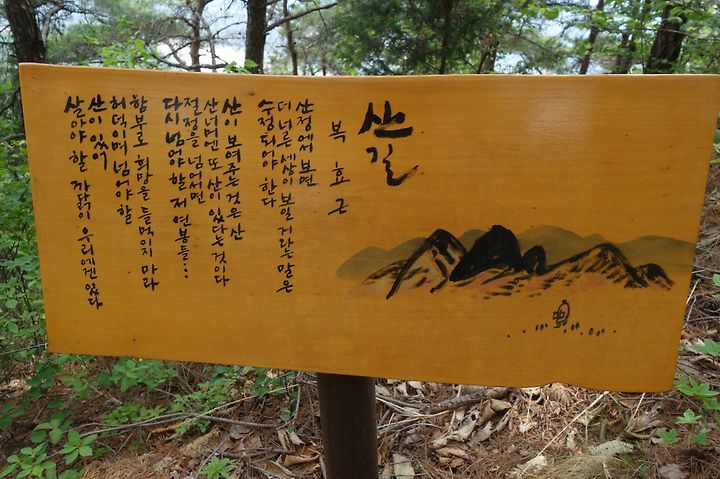 산길
복효근
산정에서 보면
더 너른 세상이 보일 거라는 말은
수정되어야 한다
산이 보여주는 것은 산
산너머엔 또 산이 있다는 것이다
절정을 넘어서면
다시 넘어야 할 저 연봉들…
함부로 희망을 들먹이지 마라
허덕이며 넘어야 할
산이 있어
살아야 할 까닭이 우리에겐 있다